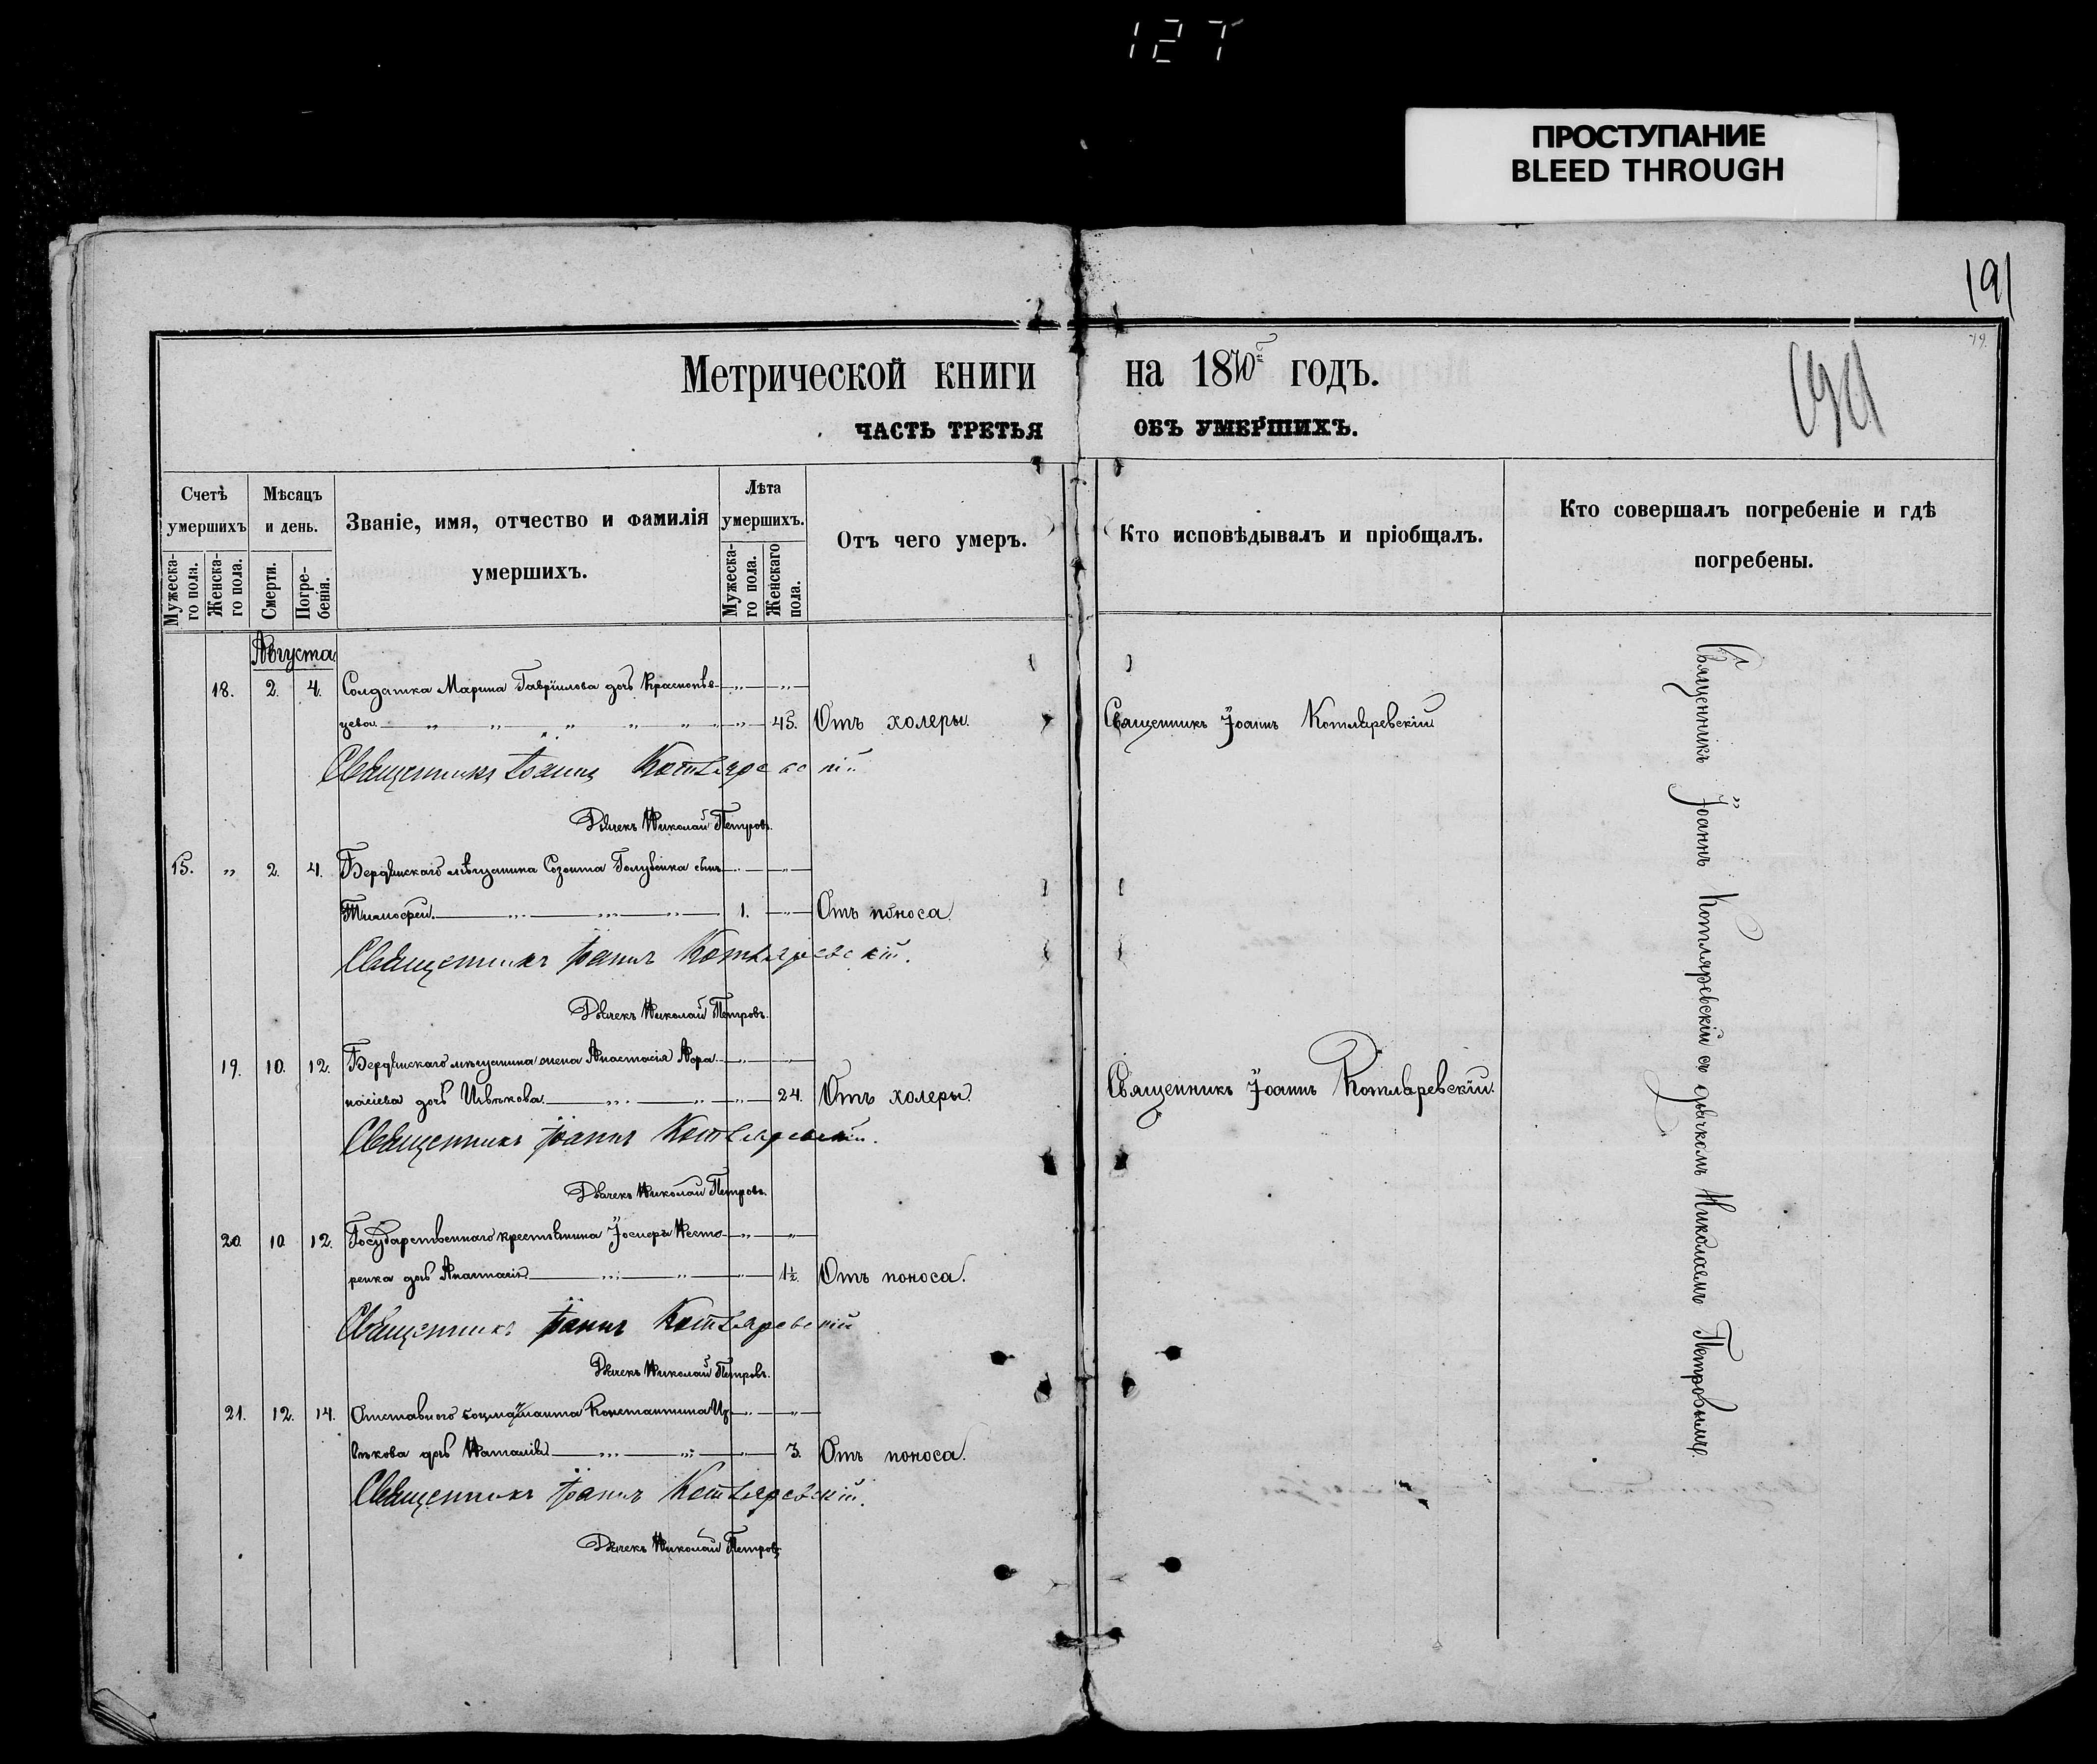 127
ПРОСТУПАНИЕ
BLEED THROUGH
191
79.
191
Метрической книги на 1870й годъ.
ЧАСТЬ ТРЕТЬЯ ОБЪ УМЕРШИХЪ.
Счетъ умершихъ
Мѣсяцъ и день.
Званіе, имя, отчество и фамилія умершихъ.
Лѣта умершихъ.
Отъ чего умеръ.
Кто исповѣдывалъ и пріобщалъ.
Кто совершалъ погребеніе и гдѣ погребены.
Мужеска-го пола.
Женска-го пола.
Смерти.
Погре-бенія.
Мужеска-го пола.
Женскаго пола.
Августа
18. 2. 4. Солдатка Марина Гавріилова дочь Краснопѣв-
цева 45. Отъ холеры. Священникъ Іоаннъ Котляревскій
Священникъ Іоаннъ Котляревскій
Дьячекъ Николай Петровъ.
15. „ 2. 4. Бердянскаго мѣщанина Созонта Голубенка сынъ
Тимофей. 1. Отъ поноса.
Священникъ Іоаннъ Котляревскій.
Дьячекъ Николай Петровъ.
19. 10. 12. Бердянскаго мѣщанина жена Анастасія
дочь 24. Отъ холеры. Священникъ Іоаннъ Котляревскій.
Священникъ Іоаннъ Котляревскій.
Дьячекъ Николай Петровъ.
20. 10. 12. Государственнаго крестьянина Несто-
ренка дочь Анастасія 1½. Отъ поноса.
Священникъ Іоаннъ Котляревскій
Дьячекъ Николай Петровъ.
21. 12. 14. Отставного Константина
дочь Наталія 3. Отъ поноса.
Священникъ Іоаннъ Котляревскій.
Дьячекъ Николай Петровъ
Священникъ Іоаннъ Котляревскій съ дьячкомъ Николаемъ Петровымъ.